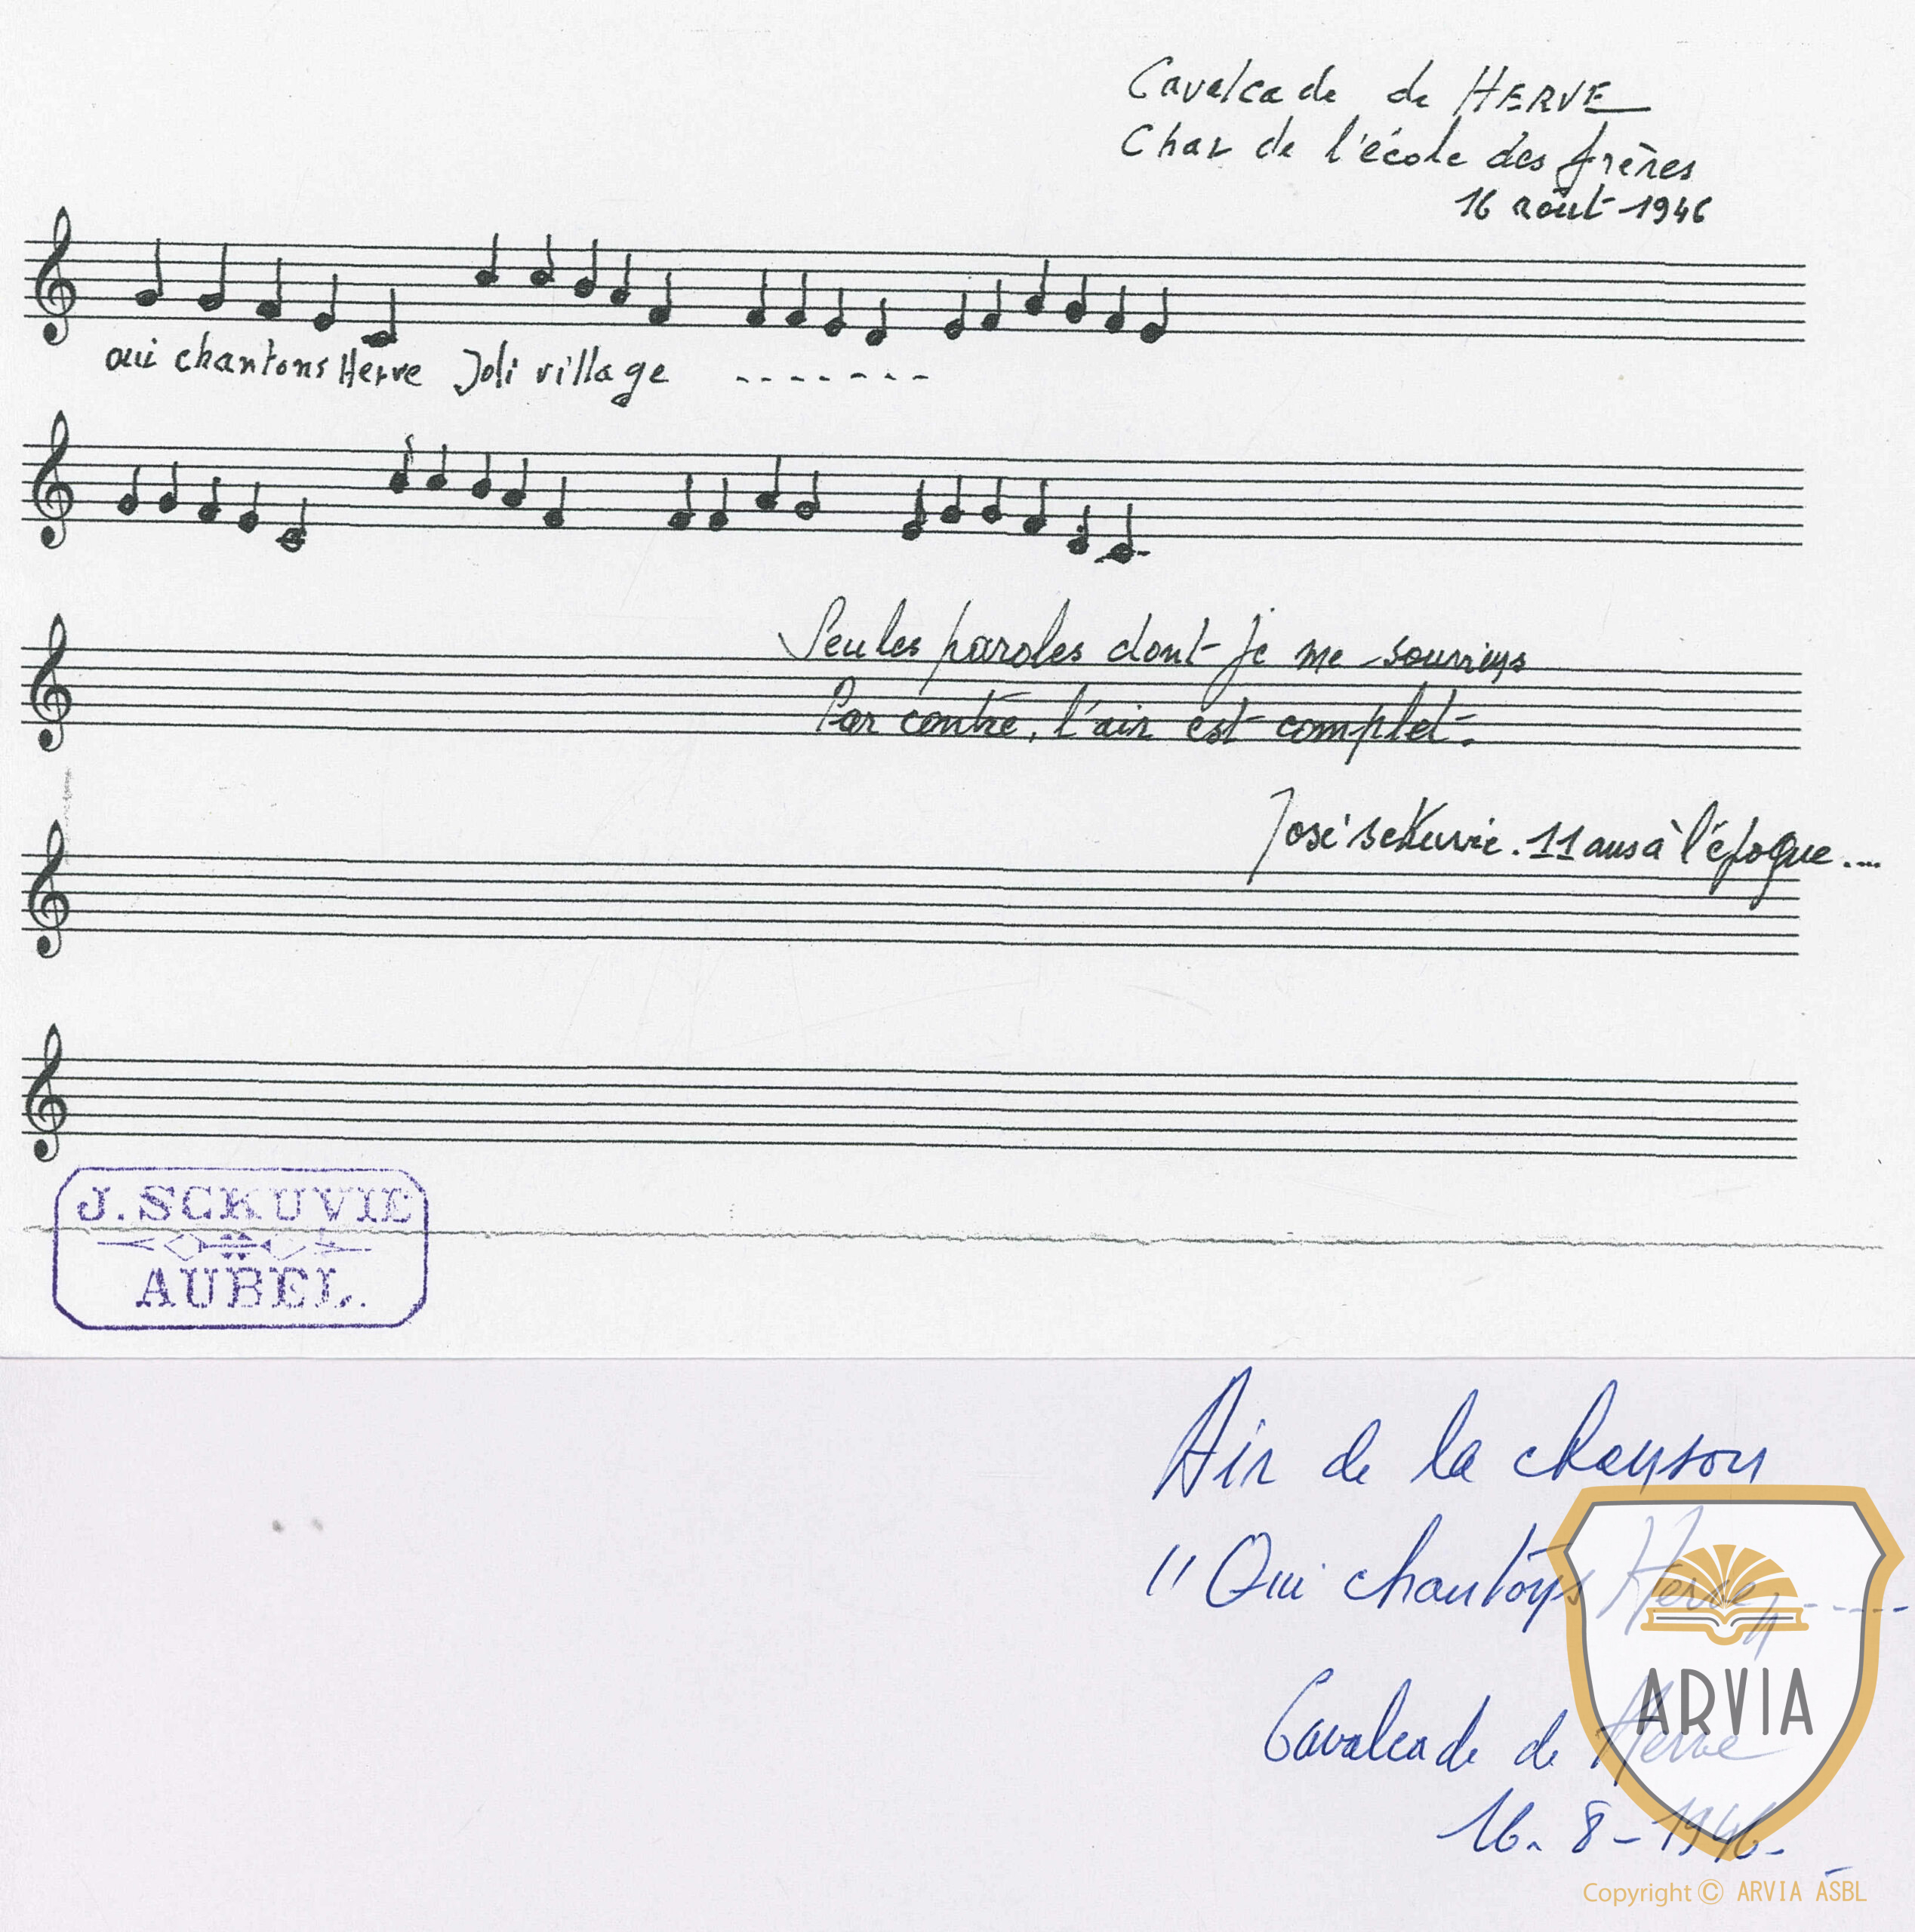 Cavalcade de HERVE
Char de l'école des frères
16 août 1946
oui chantons Herve Joli village -------
Seules paroles dont je me souviens
Par contre, l'air est complet.
José Sckuvie. 11 ans à l'époque....
J. SCKUVIE
AUBEL.
Air de la chanson
"Oui chantons Herve" -----
ARVIA
Cavalcade de Herve
16-8-1946-
Copyright © ARVIA ASBL